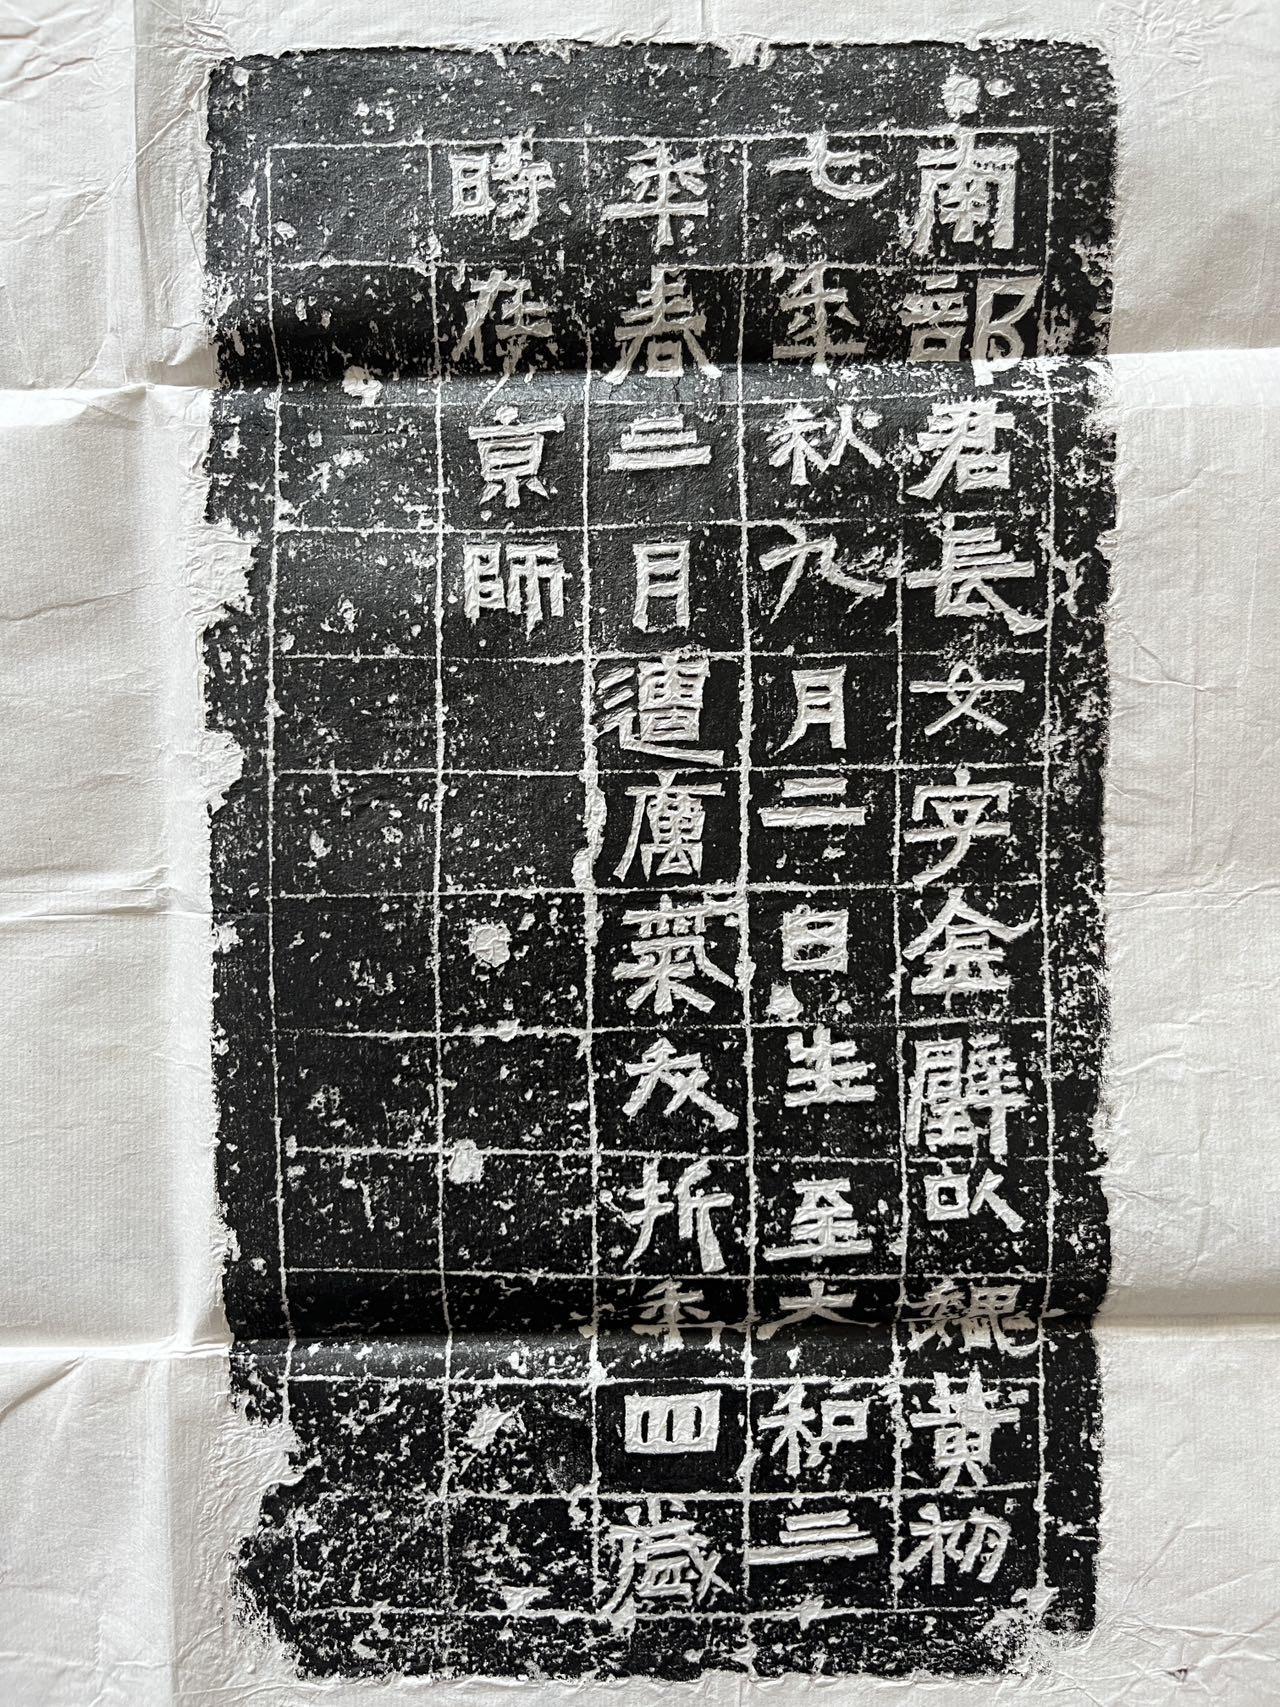 南部君長女字金以魏黃初
七年秋九月二日生至大和三
年春三月遭厲氣夭折年四歲
時在京師